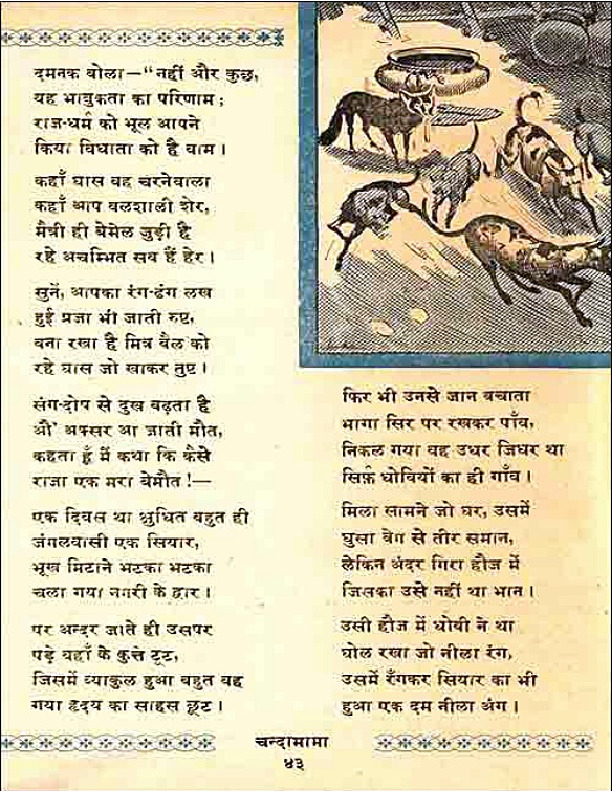 दमनक बोला—“नहीं और कुछ,
यह भावुकता का परिणाम;
राज-धर्म को भूल आपने
किया विधाता को है वाम।
कहाँ घास वह चरनेवाला
कहाँ आप बलशाली शेर,
मैत्री ही बेमेल जुड़ी है
रहे अचम्भित सब हैं हेर।
सुनें, आपका रंग-ढंग लख
हुई प्रजा भी जाती रुष्ट,
बना रखा है मित्र बैल को
रहे घास जो खाकर तुष्ट।
संग-दोष से दुख बढ़ता है
औ' अक्सर आ जाती मौत,
कहता हूँ मैं कथा कि कैसे
राजा एक मरा बेमौत!—
एक दिवस था क्षुधित बहुत ही
जंगलवासी एक सियार,
भूख मिटाने भटका भटका
चला गया नगरी के द्वार।
पर अन्दर जाते ही उसपर
पड़े वहाँ के कुत्ते टूट,
जिसमें व्याकुल हुआ बहुत वह
गया हृदय का साहस छूट।
फिर भी उनसे जान बचाता
भागा सिर पर रखकर पाँव,
निकल गया वह उधर जिधर था
सिर्फ़ धोबियों का ही गाँव।
मिला सामने जो घर, उसमें
घुसा वेग से तीर समान,
लेकिन अंदर गिरा हौज में
जिसका उसे नहीं था भान।
उसी हौज में धोबी ने था
घोल रखा जो नीला रंग,
उसमें रँगकर सियार का भी
हुआ एक दम नीला अंग।
चन्दामामा
४३